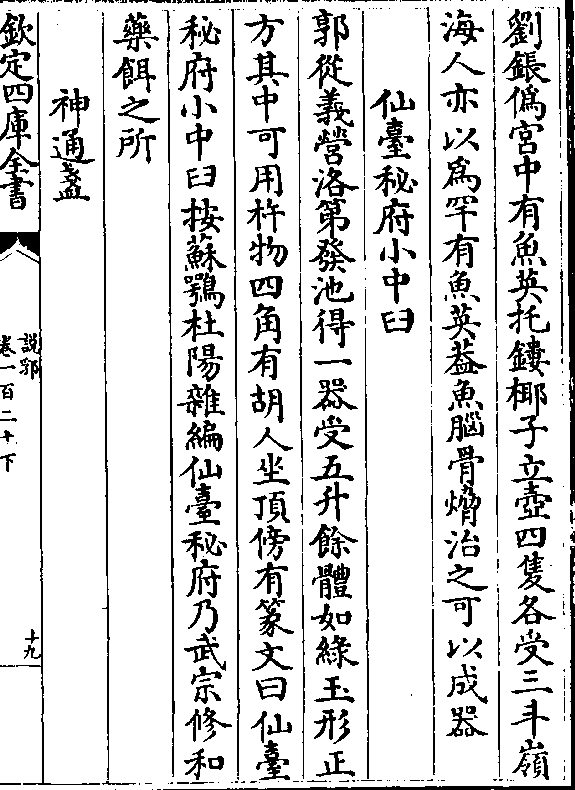 劉鋹僞宮中有魚英托鏤椰子立壺四隻各受三斗嶺
海人亦以爲罕有魚英葢魚腦骨熁治之可以成器
仙臺秘府小中臼
郭從義營洛第發池得一器受五升餘體如綠玉形正
方其中可用杵物四角有胡人坐頂傍有篆文曰仙臺
秘府小中臼按蘇鶚杜陽雜編仙臺秘府乃武宗修和
藥餌之所
神通盞
欽定四庫全書
說郛
卷一百二十下
十九